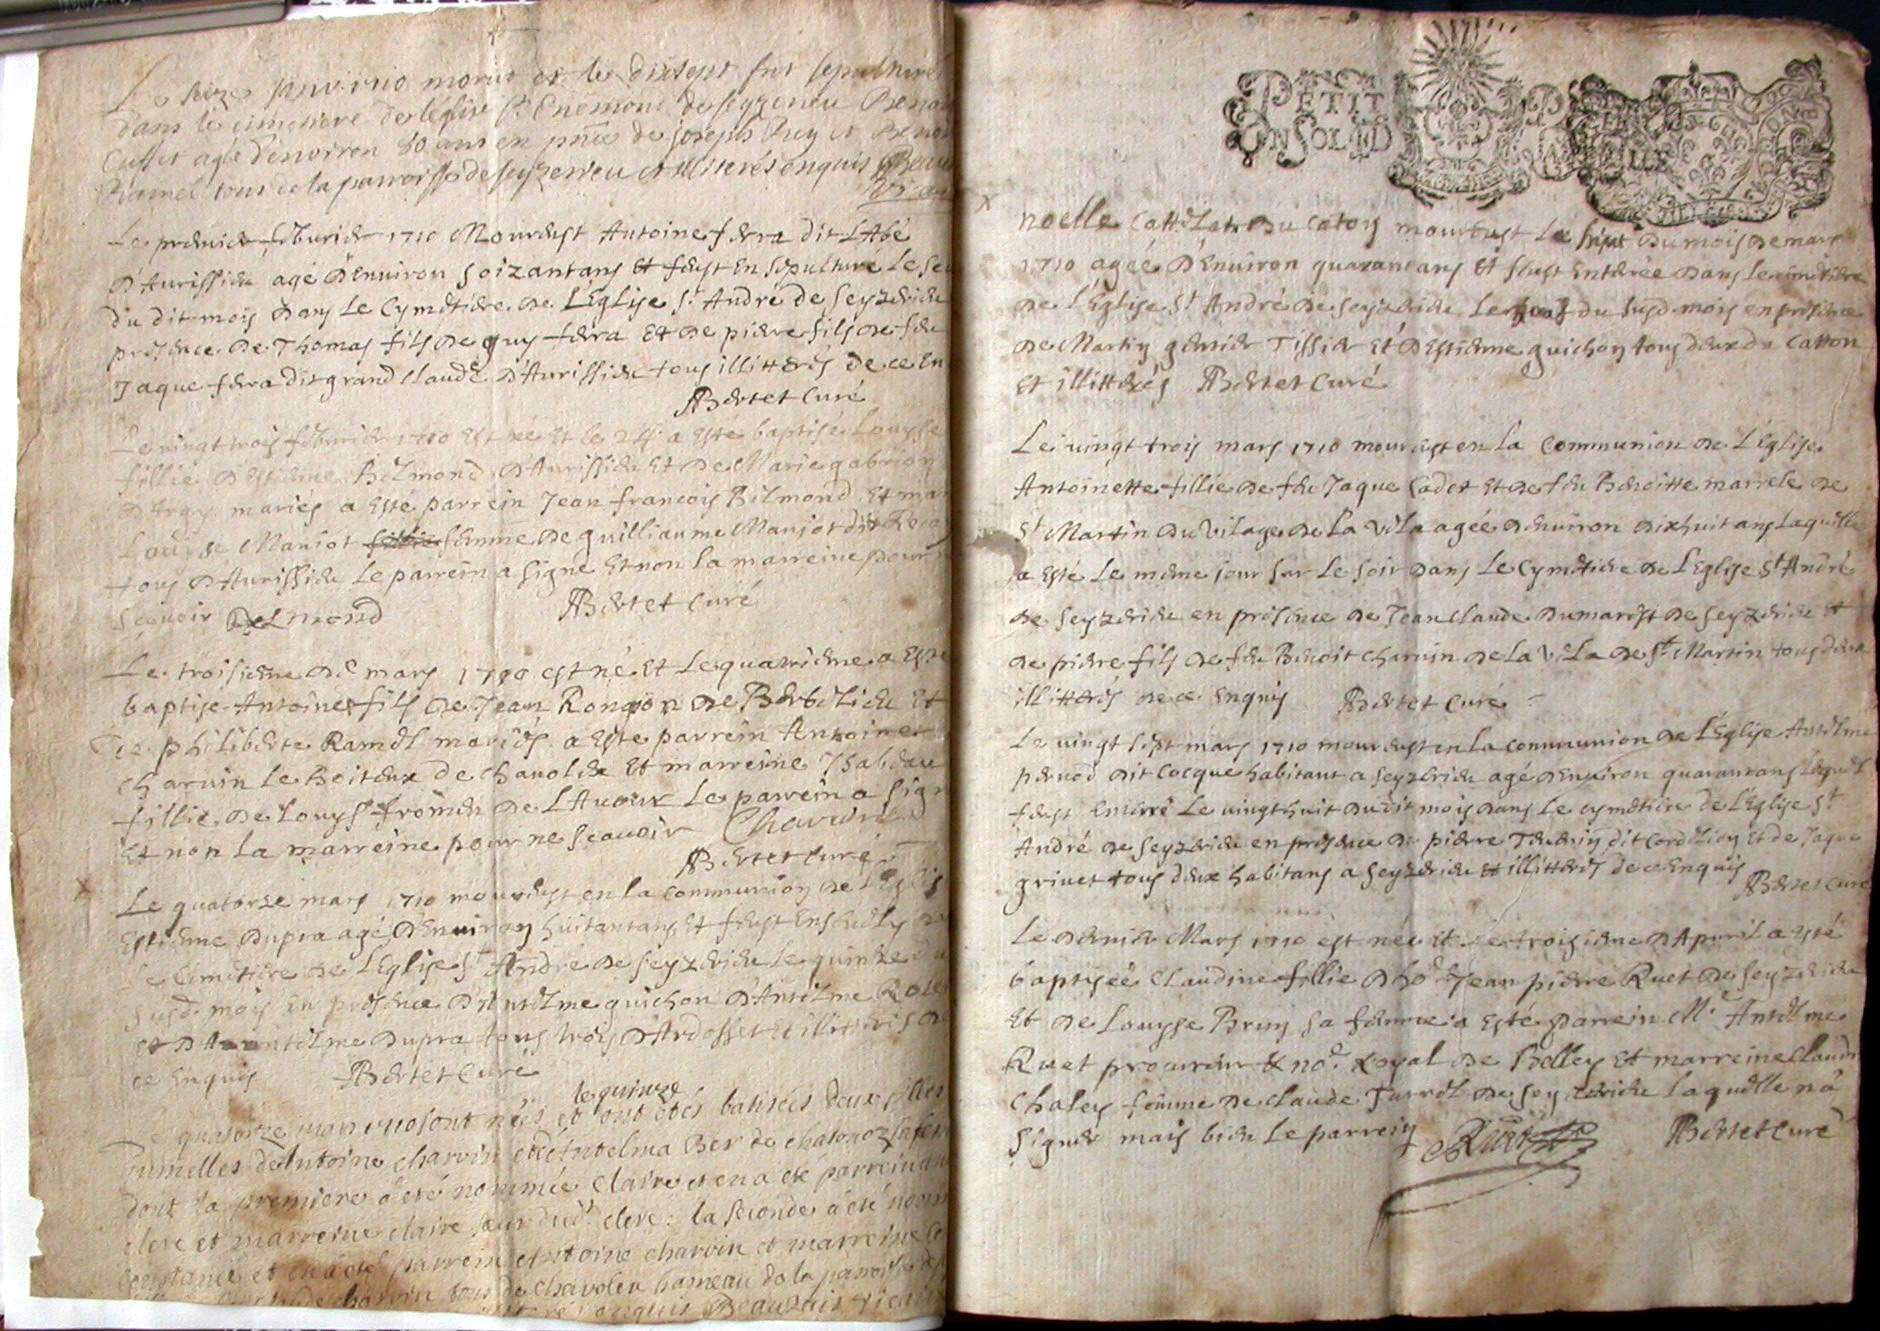 Le seize janvier 1710 mourut et le dixsept fut sepulturé
dans le cimetiere de l'église St Enemont de seyzerieu Benoi
Cusset agé d'environ 80 ans en pnce de joseph Rey et Benoi
Ramel tous de la parroisse de seyzerieu et illiterés enquis
Le premier feburier 1710 Mourust Antoine ferra dit L'Abé
d'Aurissieu agé d'Environ soizantans et feust En sepulture Le
du dit mois dans Le Cymetiere de L'Eglise St André de Seyzerieu
presence de Thomas fils de guy ferra et de pierre fils de feu
Jaque ferra dit grand Claude d'Aurissieu tous illitterés de ce En
ABertet Curé
Le vingt trois feburier 1710 Est née Et le 24 a Esté baptisée Louyse
fillie d'Estiene Belmond d'Aurissieu Et de Marie gabrion
d'Argy mariés a Esté parrein Jean francois Belmond Et mar
Louyse Maniot femme de guilliaume Maniot dit
tous d'Aurissieu Le parrein a signé Et non la marreine pour
scavoir Belmond ABertet Curé
Le troisieme de mars 1710 est né Et Le quatrieme a Esté
baptisé Antoine fils de Jean Rongon de Berbelieu Et
de philiberte Ramel mariés a Esté parrein Antoine
Charuin Le Boiteux de chauoleu Et marreine Isabeau
fillie de Louys fromen de L'Auour Le parrein a sign
Et non la marreine pour ne scauoir Charuin
ABertet Curé
Le quatorze mars 1710 mourust en la communion de L'Eglis
Estienne Dupra agé d'Enuiron huitantans Et feust Enseuely
Le Cimetiere de L'Eglise St André de Seyzerieu Le quinze
susd. mois En presence d'Antelme guichon d'Antelme
et d'Antelme Dupra tous trois d'Ardosset et illitterés de
ce Enquis ABertet Curé
le quinze
Le quatorze mars 1710 sont nées et ont étés batisées deux filles
jumelles de Antoine charvin et d'Antelma Ber de chatonoz
dont la premiere a eté nommée Claire et en a eté parrein
clerc et marreine claire soeur dud. clerc: la seconde a eté nomm
constance et en a eté parrein Antoine charvin et marreine
charvin tous de chavoleu hameau de la parroisse
enquis Beauvais vicaire
PETIT
ON SOL 4 D
x noelle Cattelat du Caton mourust Le sept du mois de mars
1710 agée d'Enuiron quarantans Et feust Enterrée dans Le cimetiere
de L'Eglise St André de Seyzerieu Le huit du susd. mois en presence
de Martin gernier Tissier Et d'Estienne guichon tous deux du Catton
et illitterés ABertet Curé
Le vingt trois mars 1710 mourust en La Communion de L'Eglise
Antoinette fillie de feu Jaque Cadot Et de feu Benoitte marrele de
St Martin du Vilage de La Vela agée d'Enuiron dixhuit ans Laquelle
a Esté Le mesme jour sur Le soir dans Le Cymetiere de L'Eglise St André
de Seyzerieu en presence de Jean Claude Dumarest de Seyzerieu et
de pierre fils de feu Benoit charuin de La Vela de St Martin tous deux
illitterés de ce Enquis ABertet Curé
Le vingt sept mars 1710 mourust en La communion de L'Eglise Antelme
pernod dit Cocque habitant a Seyzerieu agé d'Enuiron quarantans Lequel
feust Enterré Le vingt huit du dit mois dans Le cymetiere de L'Eglise St
André de Seyzerieu en presence de pierre Teuenin dit Cordelion Et de Jaque
griuet tous deux habitans a Seyzerieu et illitterés de ce Enquis
ABertet Curé
Le dernier Mars 1710 est née Et Le troisieme d'Apuril a esté
baptisée Claudine fillie d'ho. Jean pierre Ruet de Seyzerieu
Et de Louyse Brun sa femme a Esté parrein Mr Antelme
Ruet procureur & no.re Royal de Belley Et marreine Claudi
Chaley femme de Claude Turrel de Seyzerieu Laquelle n'a
signé mais bien Le parrein Ruet ABertet Curé